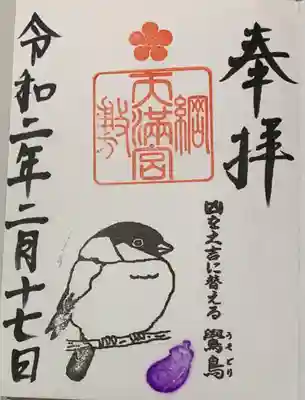 奉拝
凶を大吉に替える
鷽鳥
うそどり
綱
天満宮
敷
令和二年二月十七日